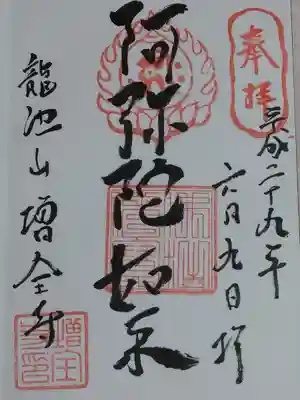 奉拝
平成二十九年
六月九日拝
阿弥陀如来
龍池山増全寺